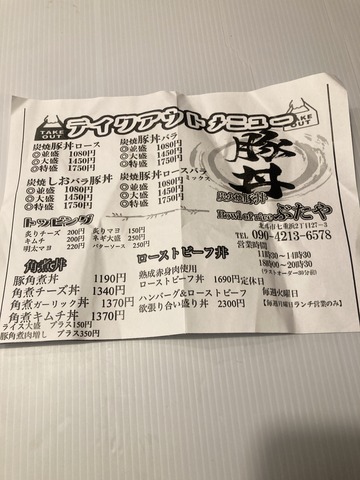 TAKE OUT
テイクアウトメニュー
TAKE OUT
炭焼豚丼ロース
◎並盛 1080円
◎大盛 1450円
◎特盛 1750円
炭焼豚丼バラ
◎並盛 1080円
◎大盛 1450円
◎特盛 1750円
炭焼しおバラ豚丼
◎並盛 1080円
◎大盛 1450円
◎特盛 1750円
炭焼豚丼ロースバラミックス
◎並盛 1080円
◎大盛 1450円
◎特盛 1750円
【トッピング】
炙りチーズ 200円
キムチ 200円
明太マヨ 220円
炙りマヨ 150円
ネギ大盛 250円
バターソース 250円
角煮丼
豚角煮丼 1190円
角煮チーズ丼 1340円
角煮ガーリック丼 1370円
角煮キムチ丼 1370円
ライス大盛 プラス150円
豚角煮肉増し プラス350円
ローストビーフ丼
熟成赤身肉使用
ローストビーフ丼 1690円
ハンバーグ&ローストビーフ
欲張り合い盛り丼 2300円
豚丼
炭焼豚丼
ぶたや
北名市七重浜2丁目27-3
090-4213-6578
営業時間
11時30~14時30
18時00~20時30
(ラストオーダー30分前)
定休日
毎週火曜日
【毎週月曜日ランチ営業のみ】